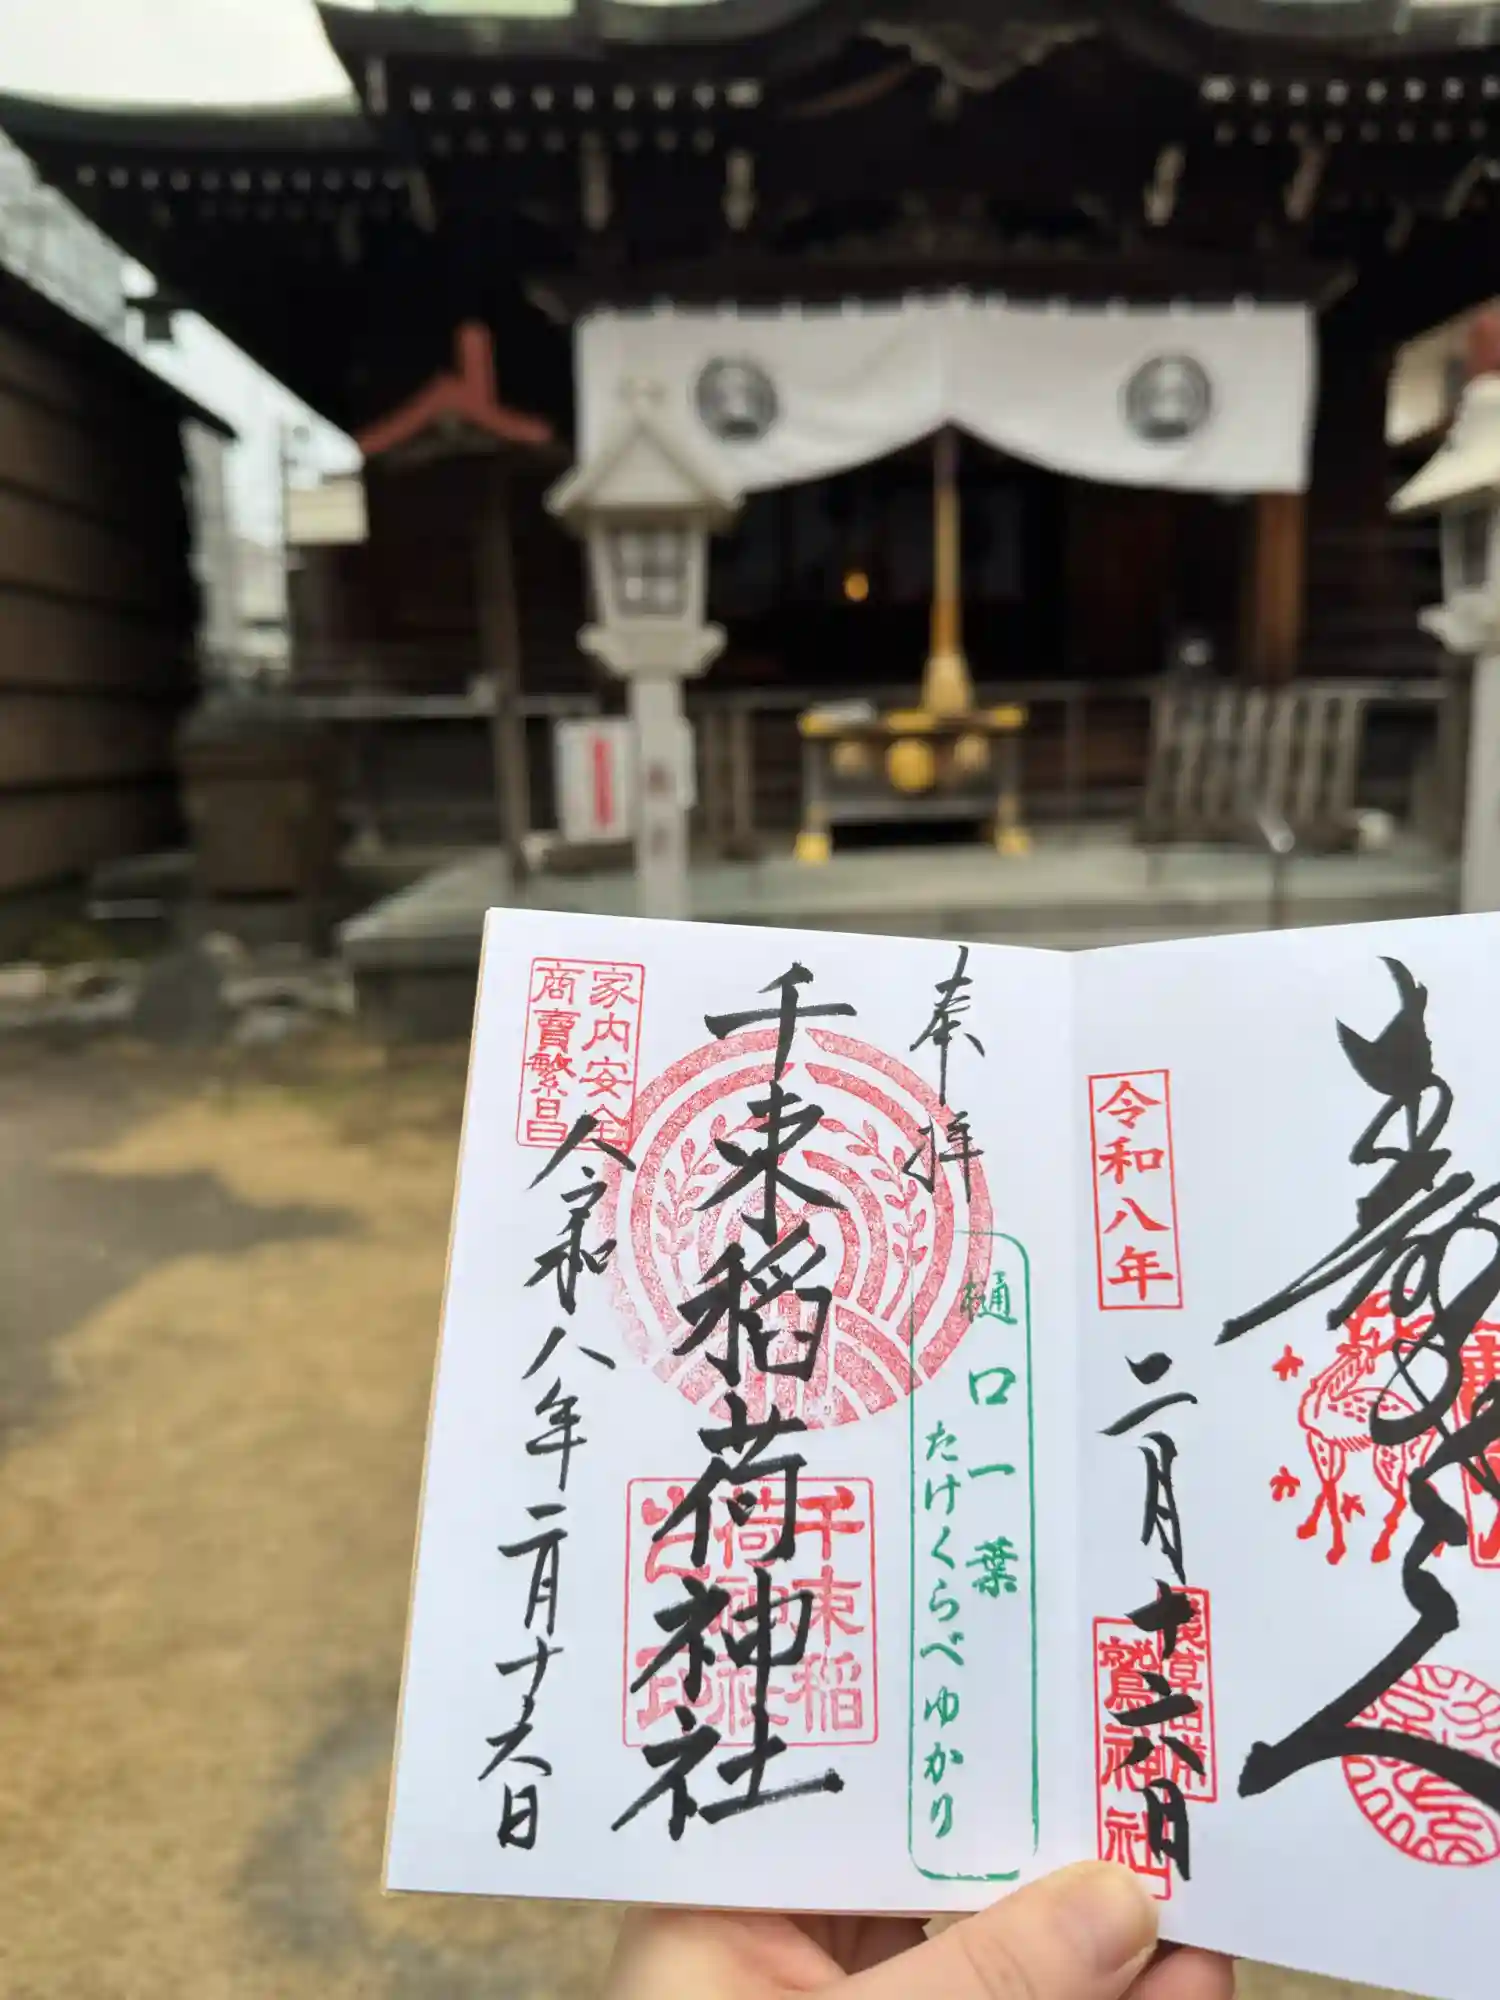 令和八年
二月十六日
浅草田甫
鷲神社
奉拝
樋口一葉
たけくらべゆかり
千束稲荷神社
千束稲
荷神社
之印
家内安全
商売繁昌
令和八年二月十六日